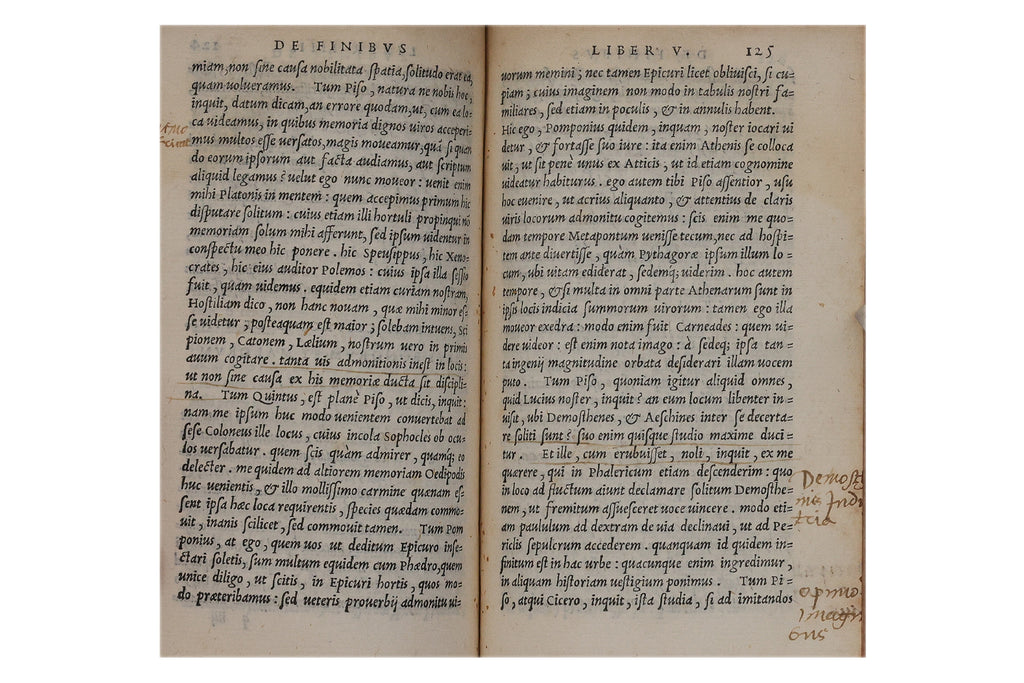 DE FINIBVS
miam, non sine causa nobilitata spatia, solitudo erat ea,
quam volueramus. Tum Piso, natura ne nobis hoc,
inquit, datum dicam, an errore quodam, ut, cum ea lo=
ca uideamus, in quibus memoria dignos uiros acceperi=
mus multos esse uersatos, magis moueamur, quā si quan
do eorum ipsorum aut facta audiamus, aut scriptum
aliquid legamus? uelut ego nunc moueor: uenit enim
mihi Platonis in mentem: quem accepimus primum hic
disputare solitum: cuius etiam illi hortuli propinqui nō
memoriam solum mihi afferunt, sed ipsum uidentur in
conspectu meo hic ponere. hic Speusippus, hic Xeno=
crates, hic eius auditor Polemos: cuius ipsa illa sessio
fuit, quam uidemus. equidem etiam curiam nostram,
Hostiliam dico, non hanc nouam, quæ mihi minor es=
se uidetur; posteaquam est maior; solebam intuens, Sci
pionem, Catonem, Lælium, nostrum uero in primis
auum cogitare. tanta uis admonitionis inest in locis:
ut non sine causa ex his memoriæ ducta sit discipli=
na. Tum Quintus, est planè Piso, ut dicis, inquit:
nam me ipsum huc modo uenientem conuertebat ad
sese Coloneus ille locus, cuius incola Sophocles ob ocu=
los uersabatur. quem scis quàm admirer, quamq; eo
delecter. me quidem ad altiorem memoriam Oedipodis
huc uenientis, & illo mollissimo carmine quænam es=
sent ipsa hæc loca requirentis, species quædam commo=
uit, inanis scilicet, sed commouit tamen. Tum Pom
ponius, at ego, quem uos ut deditum Epicuro inse=
ctari soletis, sum multum equidem cum Phædro, quem
unice diligo, ut scitis, in Epicuri hortis, quos mo=
do præteribamus: sed ueteris prouerbij admonitu ui=
LIBER V. 125
uorum memini; nec tamen Epicuri licet obliuisci, si cu=
piam; cuius imaginem non modo in tabulis nostri fa=
miliares, sed etiam in poculis, & in annulis habent.
Hic ego, Pomponius quidem, inquam, noster iocari ui
detur, & fortasse suo iure: ita enim Athenis se colloca
uit, ut sit penè unus ex Atticis, ut id etiam cognomine
uideatur habiturus. ego autem tibi Piso assentior, usu
hoc euenire, ut acrius aliquanto, & attentius de claris
uiris locorum admonitu cogitemus: scis enim me quo=
dam tempore Metapontum uenisse tecum, nec ad hospi=
tem ante diuertisse, quàm Pythagoræ ipsum illum lo=
cum, ubi uitam ediderat, sedemq; uiderim. hoc autem
tempore, & si multa in omni parte Athenarum sunt in
ipsis locis indicia summorum uirorum: tamen ego illa
moueor exedra: modo enim fuit Carneades: quem ui=
dere uideor: est enim nota imago: à sedeq; ipsa tan=
ta ingenij magnitudine orbata desiderari illam uocem
puto. Tum Piso, quoniam igitur aliquid omnes,
quid Lucius noster, inquit? an eum locum libenter in=
uisit, ubi Demosthenes, & Aeschines inter se decerta=
re soliti sunt? suo enim quisque studio maxime duci=
tur. Et ille, cum erubuisset, noli, inquit, ex me
quærere, qui in Phalericum etiam descenderim: quo
in loco ad fluctum aiunt declamare solitum Demosthe=
nem, ut fremitum assuesceret uoce uincere. modo eti=
am paululum ad dextram de uia declinaui, ut ad Pe=
riclis sepulcrum accederem. quanquam id quidem in=
finitum est in hac urbe: quacunque enim ingredimur,
in aliquam historiam uestigium ponimus. Tum Pi=
so, atqui Cicero, inquit, ista studia, si ad imitandos
Demost
opinio
imagin
bus